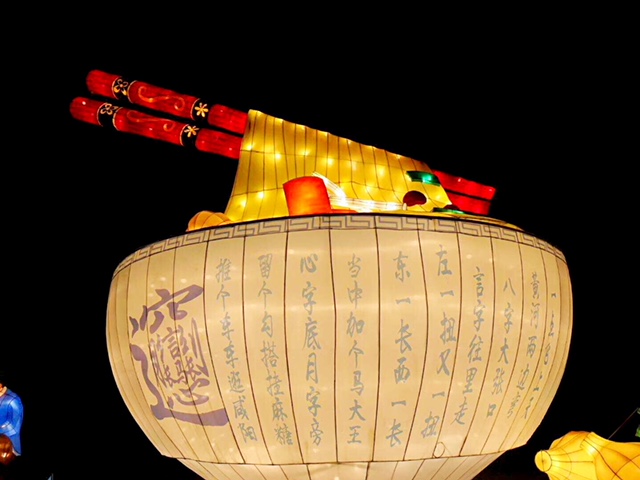 一点
黄河两边弯
八字大张口
言字往里走
左一扭又一扭
东一长西一长
当中加个马大王
心字底月字旁
留个勾搭挂麻糖
推个车车逛咸阳
𰻞